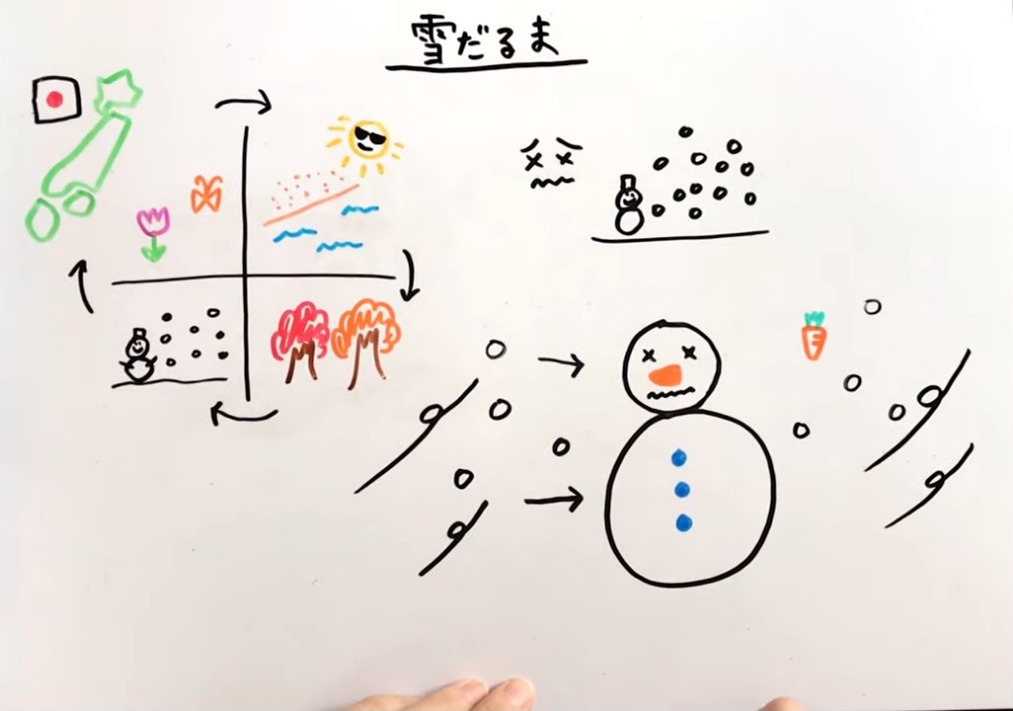 雪だるま